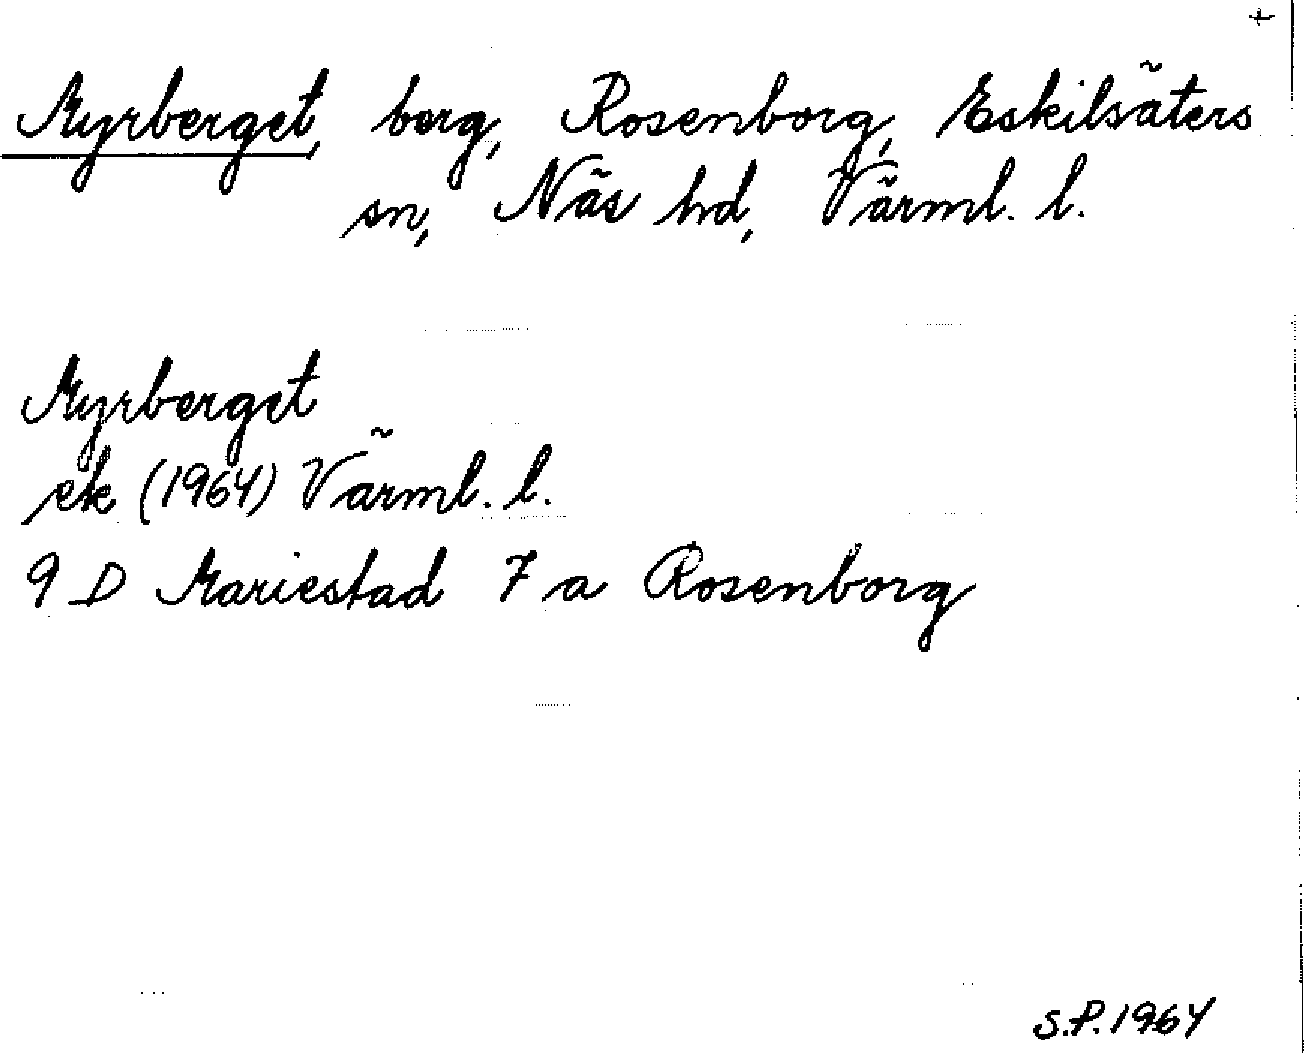 +
Myrberget, berg, Rosenborg, Eskilsäters
sn, Näs hd, Värml. l.
Myrberget
ek (1964) Värml. l.
9 D Mariestad 7 a Rosenborg
S.P. 1964